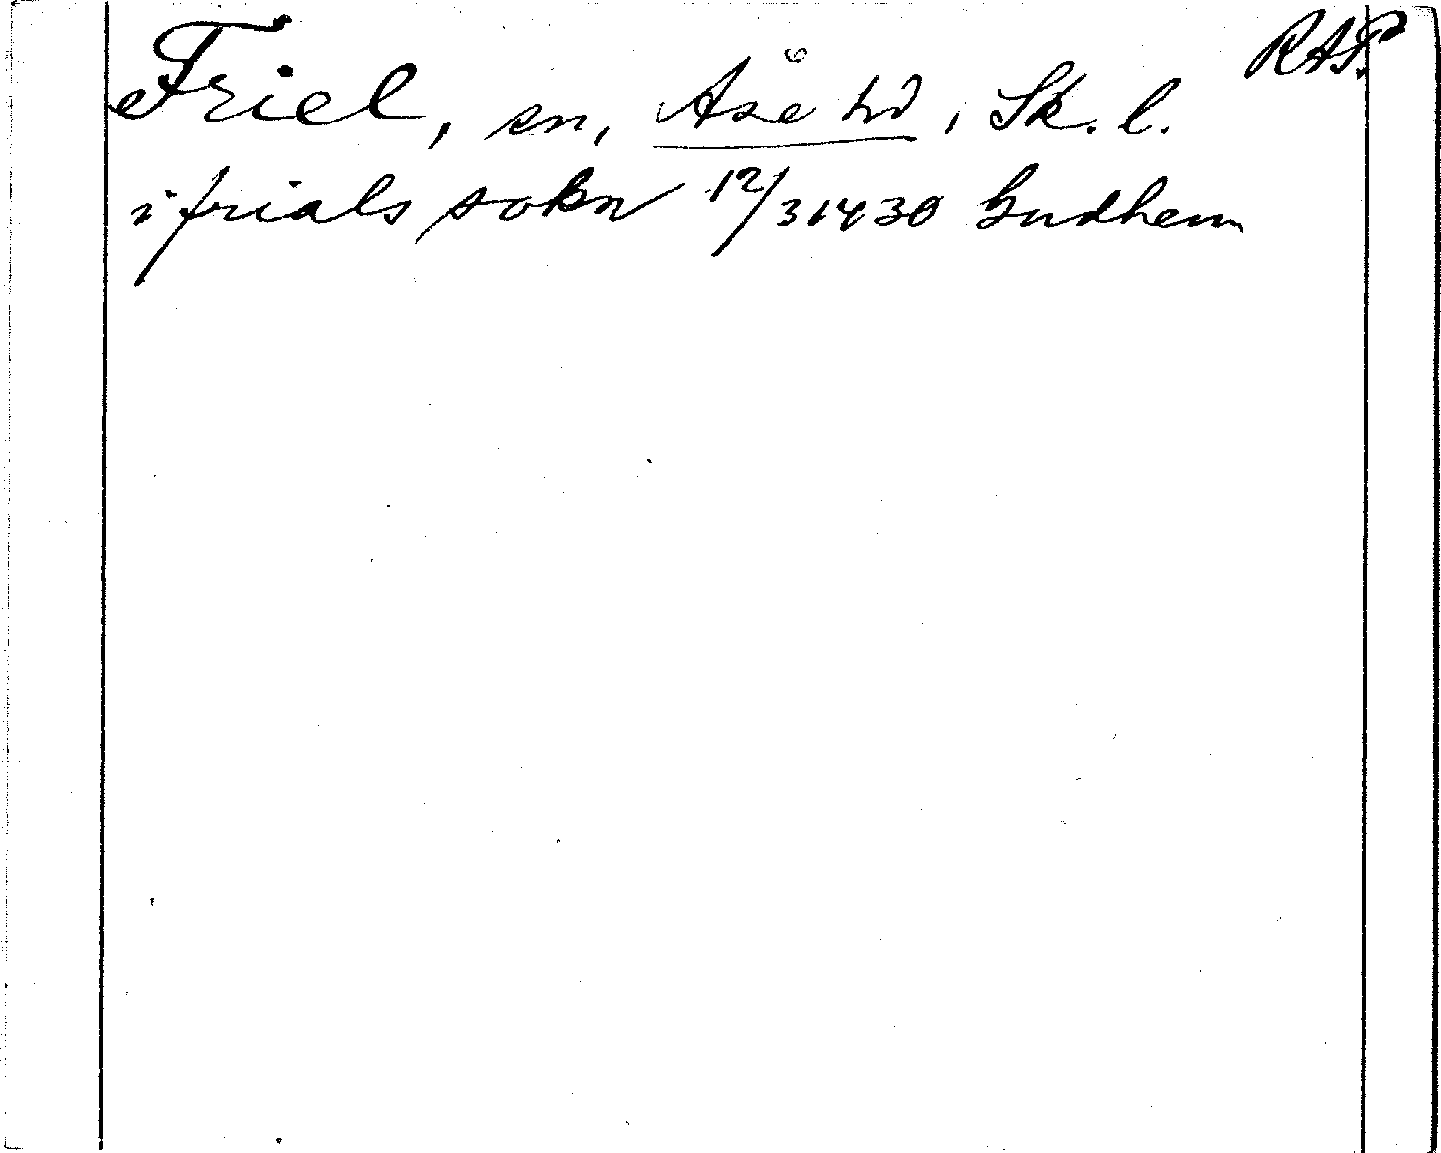 Friel, sn, Åse hd, Sk. l. RAP.
i frials sokn 12/3 1430 Gudhem